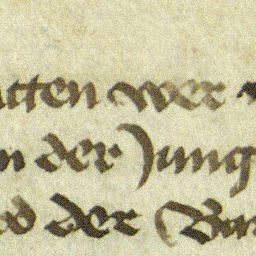 tten wer
n der Jung
d der Bar